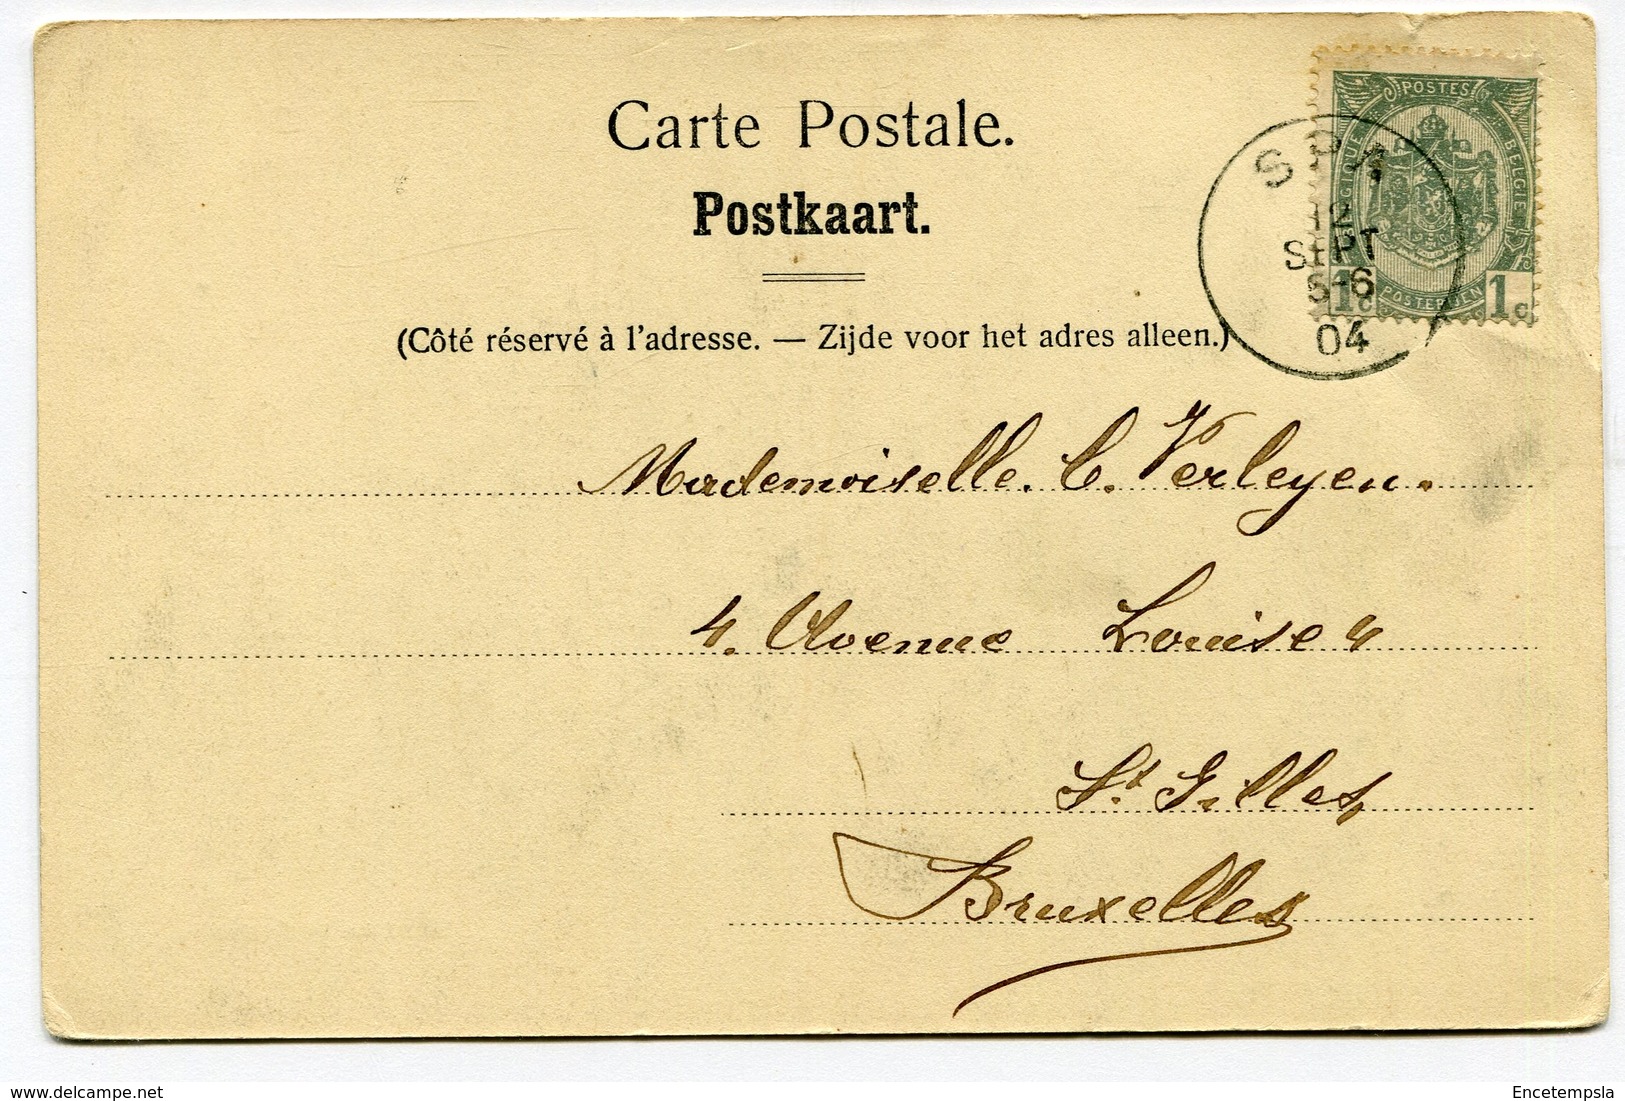 Carte Postale.
Postkaart.
(Côté réservé à l'adresse. — Zijde voor het adres alleen.)
POSTES
BELGIQUE
BELGIE
POSTERIJEN
1c 1c
SPA
12
SEPT
5-6
04
Mademoiselle. C. Verleyen.
4. Avenue Louise 4
St. Gilles
Bruxelles
delcampe.net
Encetempsla